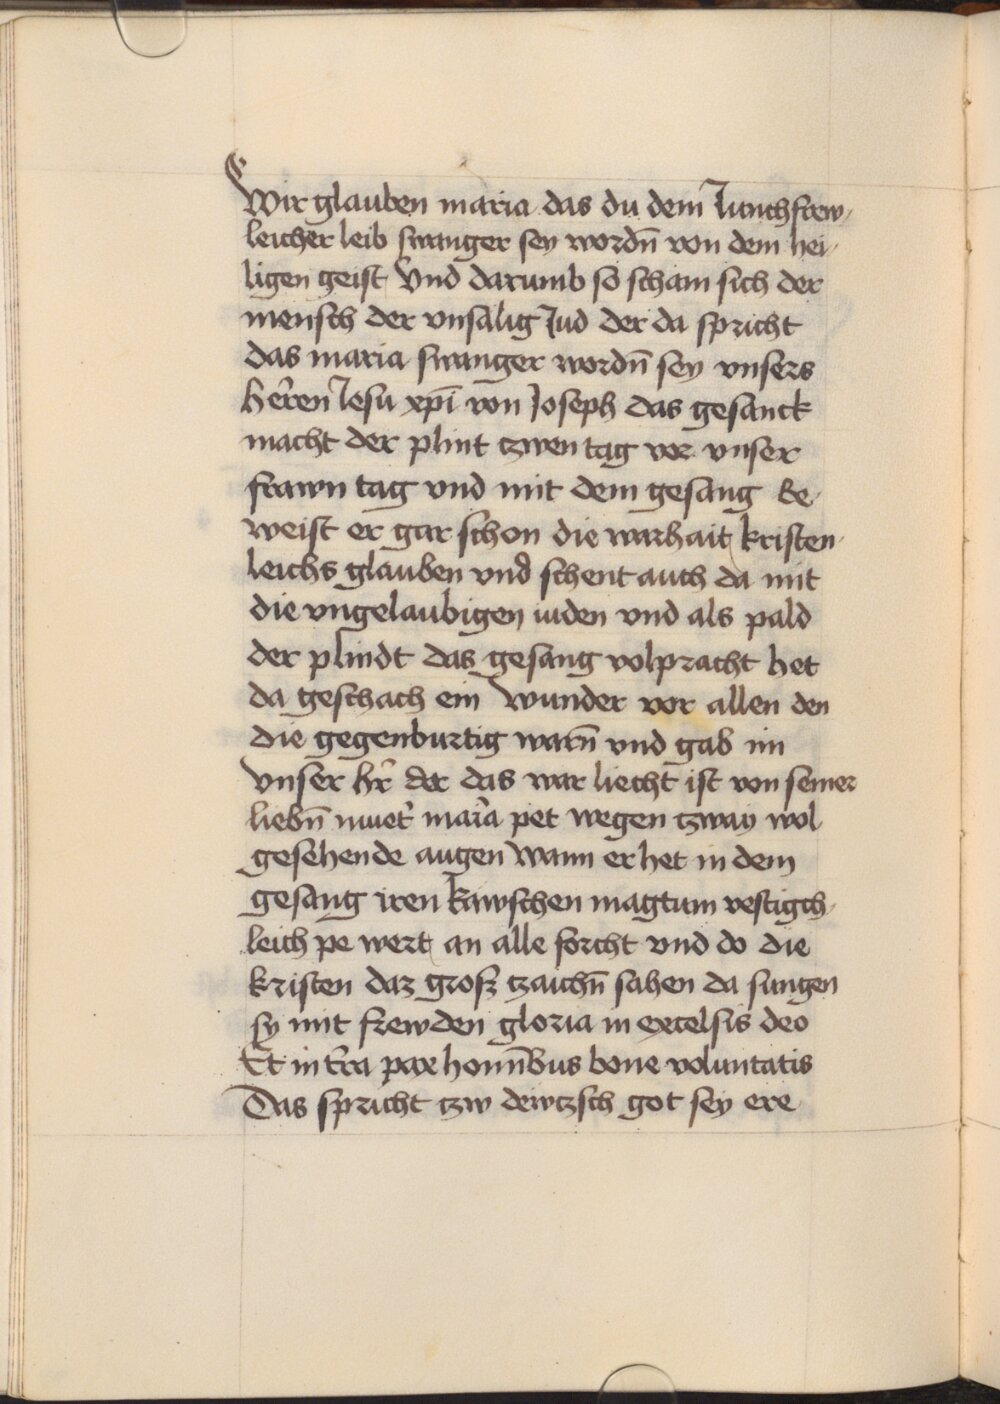 Wir glauben maria das du dem Junchfrew-
leicher leib swanger sey wordn̄ von dem hei-
ligen geist Vnd darumb so scham sich der
mensch der vnsalig Jud der da spricht
das maria swanger wordn̄ sey vnsers
herren Jesu xp̄i von Joseph das gesanck
macht der plint tzwen tag vor vnser
frawn tag vnd mit dem gesang be-
weist er gar schon die warhait kristen-
leichs glauben vnd schent auch da mit
die vngelaubigen iuden vnd als pald
der plindt das gesang volpracht het
da geschach ein wunder vor allen den
die gegenburtig warn̄ vnd gab im
vnser hr̄ der das war liecht ist von seiner
liebn̄ muet̄ maria pet wegen tzway wol
gesehende augen wann er het in dem
gesang iren kawschen magtum vestigch-
leich pe wert an alle forcht vnd do die
kristen daz grosz tzaichn̄ sahen da sungen
sy mit frewden gloria in excelsis deo
Et in t̄ra pax homīnbus bone voluntatis
Das spricht tzw dewtzsch got sey ere